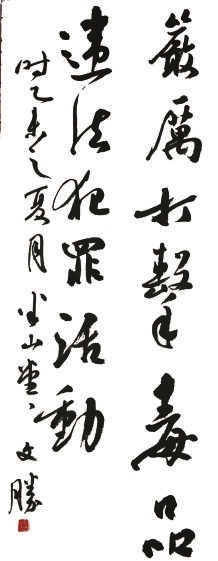 嚴厲打擊毒品
違法犯罪活動
时乙未之夏月 半山堂 文勝